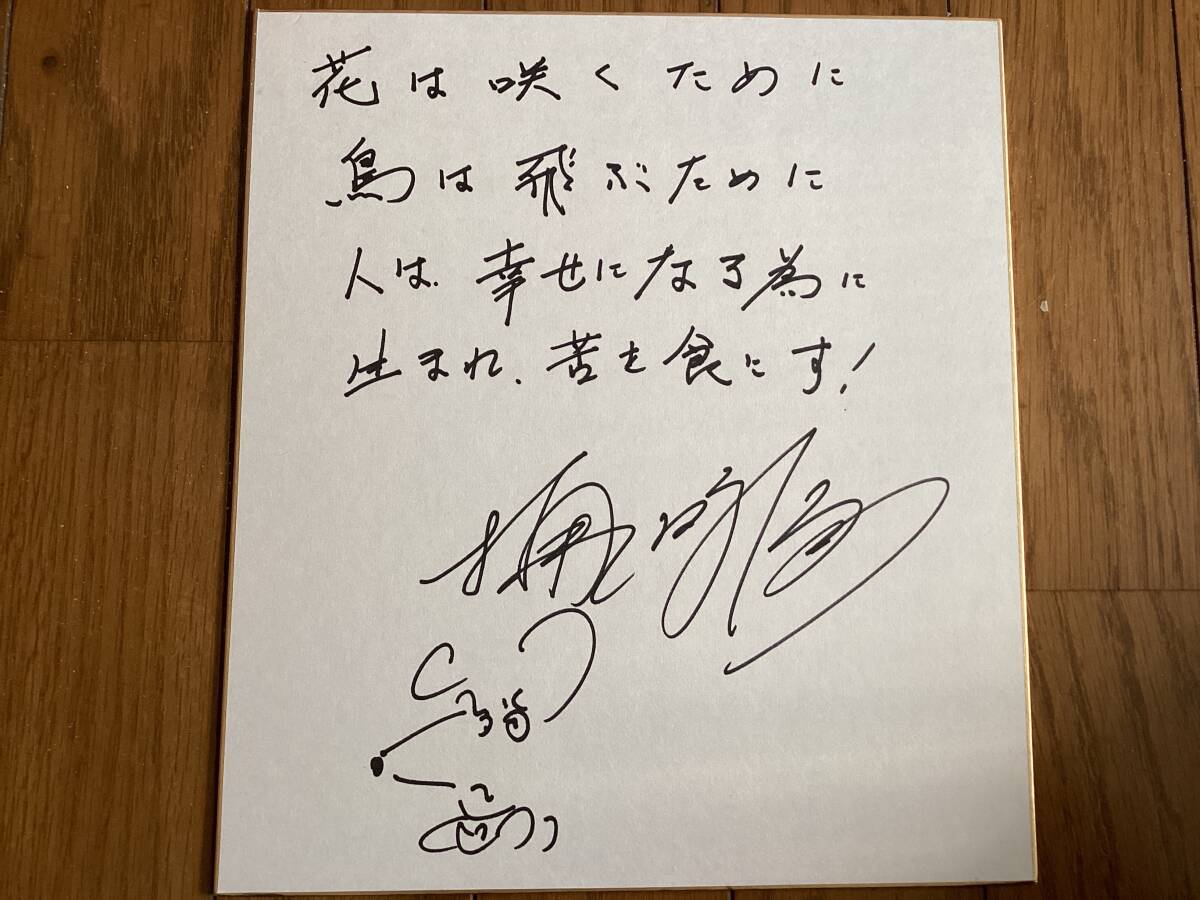 花は咲くために
鳥は飛ぶために
人は、幸せになる為に
生まれ、苦を食にす!